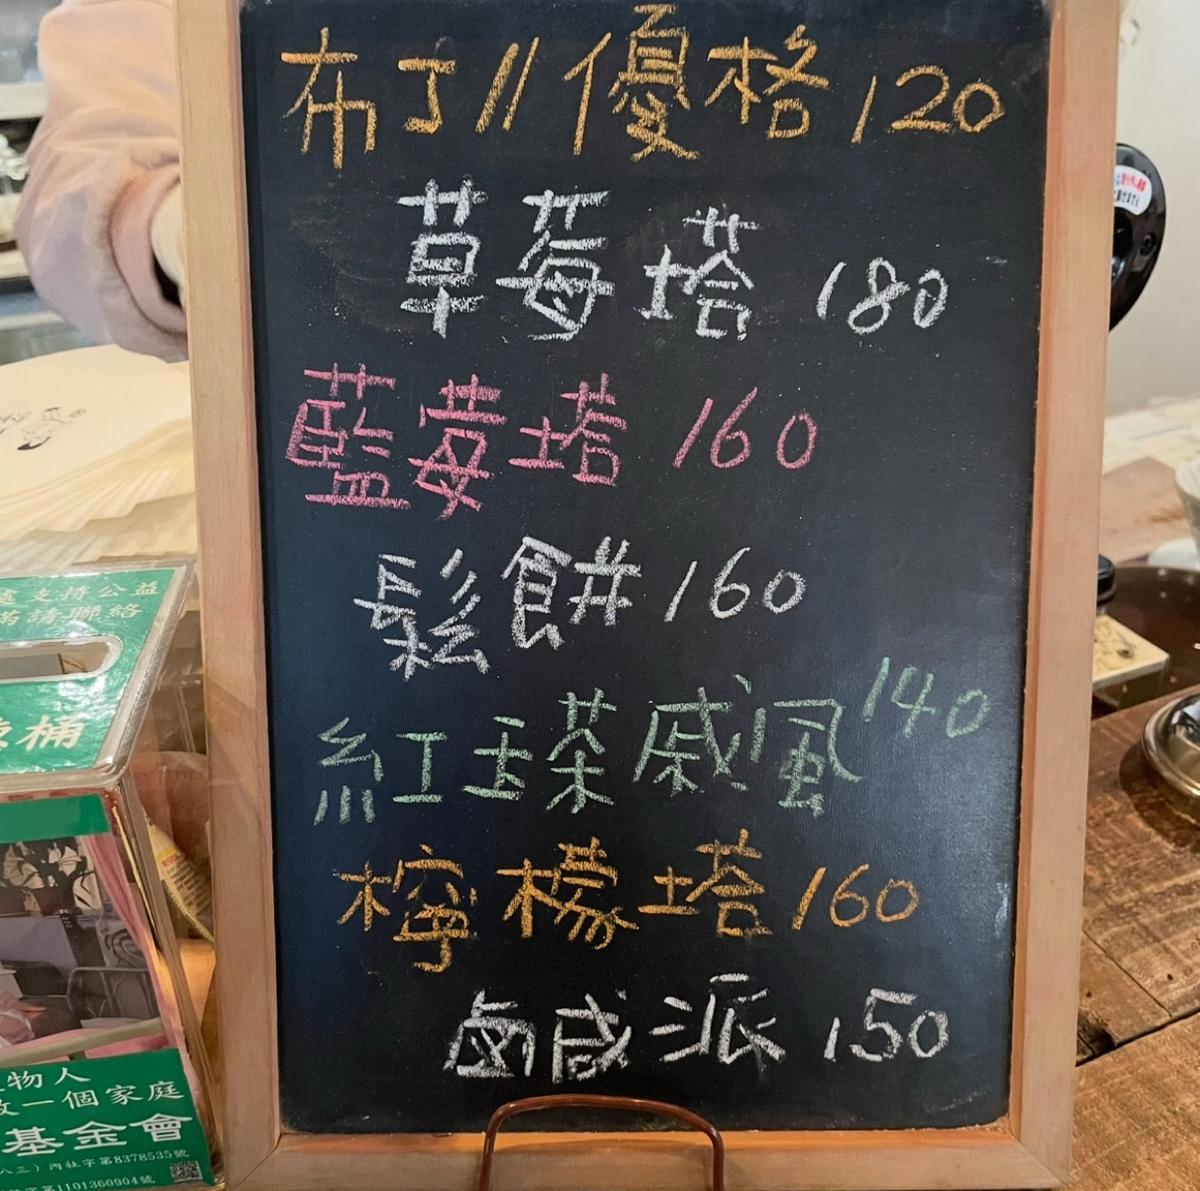 布丁//優格 120
草莓塔 180
藍莓塔 160
鬆餅 160
紅玉茶戚風 140
檸檬塔 160
鹹派 150
支持公益
請聯絡
桶
物人
一個家庭
基金會
八三）內社字第8378535號
字第1101360904號